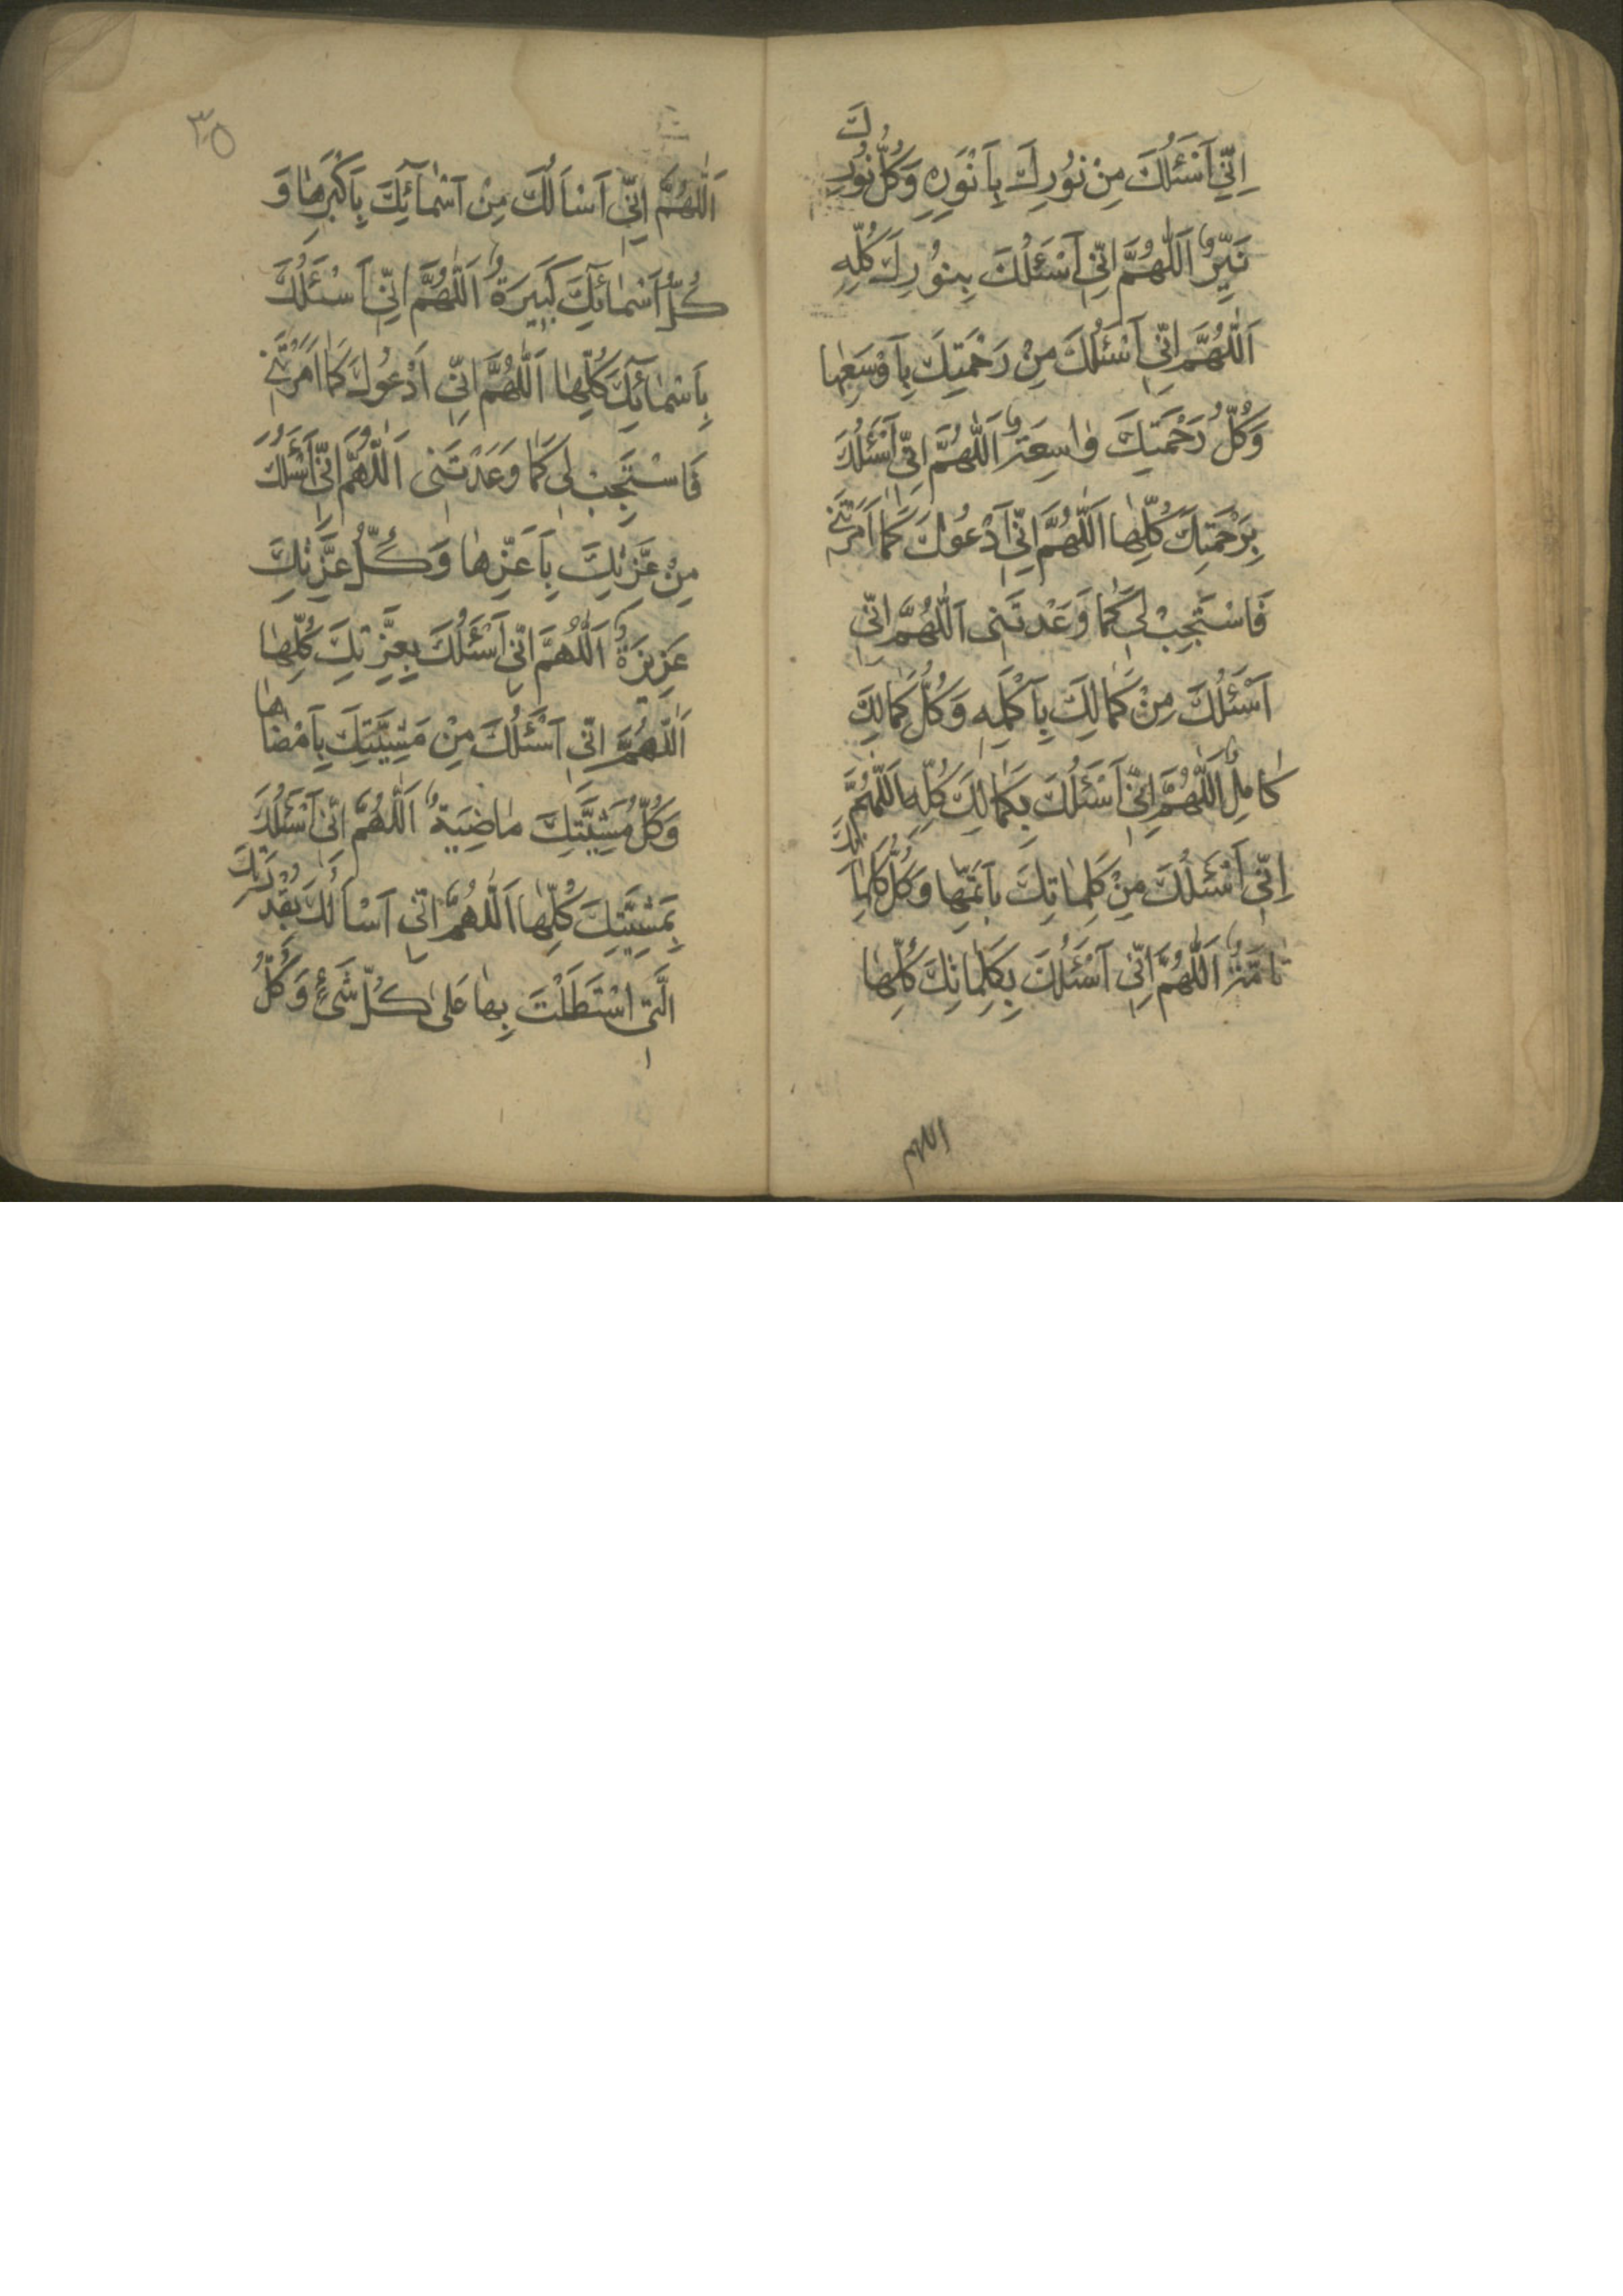 اِنّٖي اَسْئَلُكَ مِنْ نُورِكَ بِاَنْوَرِهِ وَكُلُّ نُورِكَ
نَيِّرٌ اَللّٰهُمَّ اِنّٖي اَسْئَلُكَ بِنُورِكَ كُلِّهِ
اَللّٰهُمَّ اِنّٖي اَسْئَلُكَ مِنْ رَحْمَتِكَ بِاَوْسَعِهٰا
وَكُلُّ رَحْمَتِكَ وٰاسِعَةٌ اَللّٰهُمَّ اِنّٖي اَسْئَلُكَ
بِرَحْمَتِكَ كُلِّهٰا اَللّٰهُمَّ اِنّٖي اَدْعُوكَ كَمٰا اَمَرْتَنٖي
فَاسْتَجِبْ لٖي كَمٰا وَعَدْتَنٖى اَللّٰهُمَّ اِنّٖي
اَسْئَلُكَ مِنْ كَمٰالِكَ بِاَكْمَلِهِ وَكُلُّ كَمٰالِكَ
كٰامِلٌ اَللّٰهُمَّ اِنّٖي اَسْئَلُكَ بِكَمٰالِكَ كُلِّهِ اَللّٰهُمَّ
اِنّٖي اَسْئَلُكَ مِنْ كَلِمٰاتِكَ بِاَتَمِّهٰا وَكُلُّ كَلِمٰاتِكَ
تٰامَّةٌ اَللّٰهُمَّ اِنّٖي اَسْئَلُكَ بِكَلِمٰاتِكَ كُلِّهٰا
اللهم
٣٥
اَللّٰهُمَّ اِنّٖي اَسْاَلُكَ مِنْ اَسْمٰآئِكَ بِاَكْبَرِهٰا وَ
كُلُّ اَسْمٰائِكَ كَبٖيرَةٌ اَللّٰهُمَّ اِنّٖي اَسْئَلُكَ
بِاَسْمٰائِكَ كُلِّهٰا اَللّٰهُمَّ اِنّٖي اَدْعُوكَ كَمٰا اَمَرْتَنٖي
فَاسْتَجِبْ لٖي كَمٰا وَعَدْتَنٖى اَللّٰهُمَّ اِنّٖي اَسْئَلُكَ
مِنْ عِزَّتِكَ بِاَعَزِّهٰا وَكُلُّ عِزَّتِكَ
عَزٖيزَةٌ اَللّٰهُمَّ اِنّٖي اَسْئَلُكَ بِعِزَّتِكَ كُلِّهٰا
اَللّٰهُمَّ اِنّٖي اَسْئَلُكَ مِنْ مَشِيَّتِكَ بِاَمْضٰاهٰا
وَكُلُّ مَشِيَّتِكَ مٰاضِيَةٌ اَللّٰهُمَّ اِنّٖي اَسْئَلُكَ
بِمَشِيَّتِكَ كُلِّهٰا اَللّٰهُمَّ اِنّٖي اَسْاَلُكَ بِقُدْرَتِكَ
الَّتٖي اسْتَطَلْتَ بِهٰا عَلٰى كُلِّ شَيْءٍ وَكُلُّ